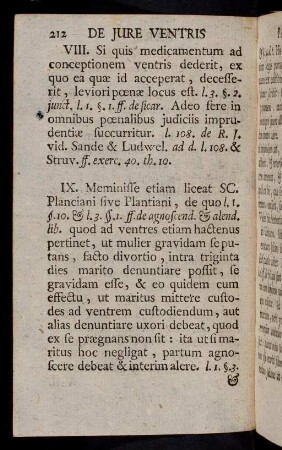 212 DE JURE VENTRIS
VIII. Si quis medicamentum ad
conceptionem ventris dederit, ex
quo ea quæ id acceperat, decesse-
rit, leviori pœnæ locus est. l. 3. §. 2.
junct. l. 1. §. 1. ff. de sicar. Adeo fere in
omnibus pœnalibus judiciis impru-
dentiæ succurritur. l. 108. de R. J.
vid. Sande & Ludwel. ad d. l. 108. &
Struv. ff. exerc. 40. th. 10.
IX. Meminisse etiam liceat SC.
Planciani sive Plantiani, de quo l. 1.
§. 10. & l. 3. §. 1. ff. de agnoscend. & alend.
lib. quod ad ventres etiam hactenus
pertinet, ut mulier gravidam se pu-
tans, facto divortio, intra triginta
dies marito denuntiare possit, se
gravidam esse, & eo quidem cum
effectu, ut maritus mittere custo-
des ad ventrem custodiendum, aut
alias denuntiare uxori debeat, quod
ex se prægnans non sit: ita ut si ma-
ritus hoc negligat, partum agno-
scere debeat & interim alere. l. 1. §. 3.
&